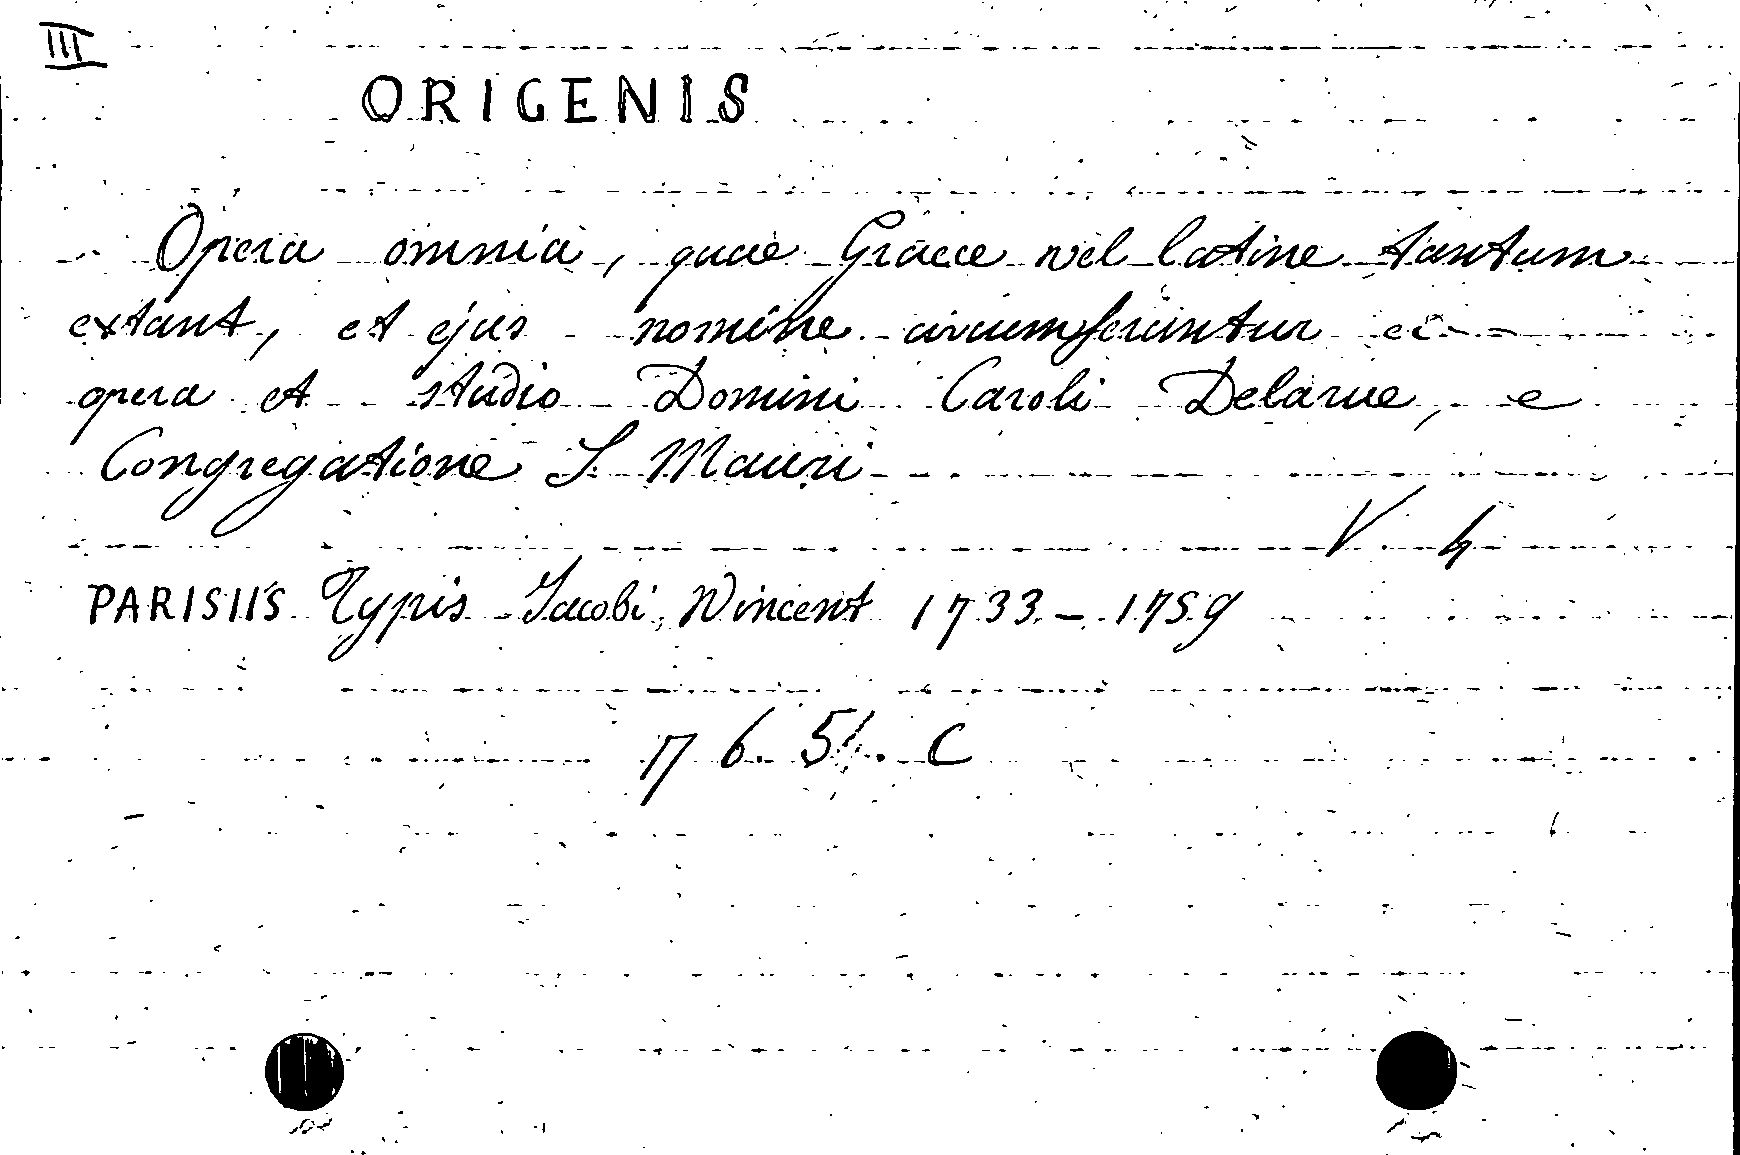 III
ORIGENIS
Opera omnia, quae Graece vel latine tantum
extant, et ejus nomine circumferuntur
opera et studio Domini Caroli Delarue, e
Congregatione S. Mauri
V 4
PARISIIS Typis Jacobi, Vincent 1733 - 1759
C